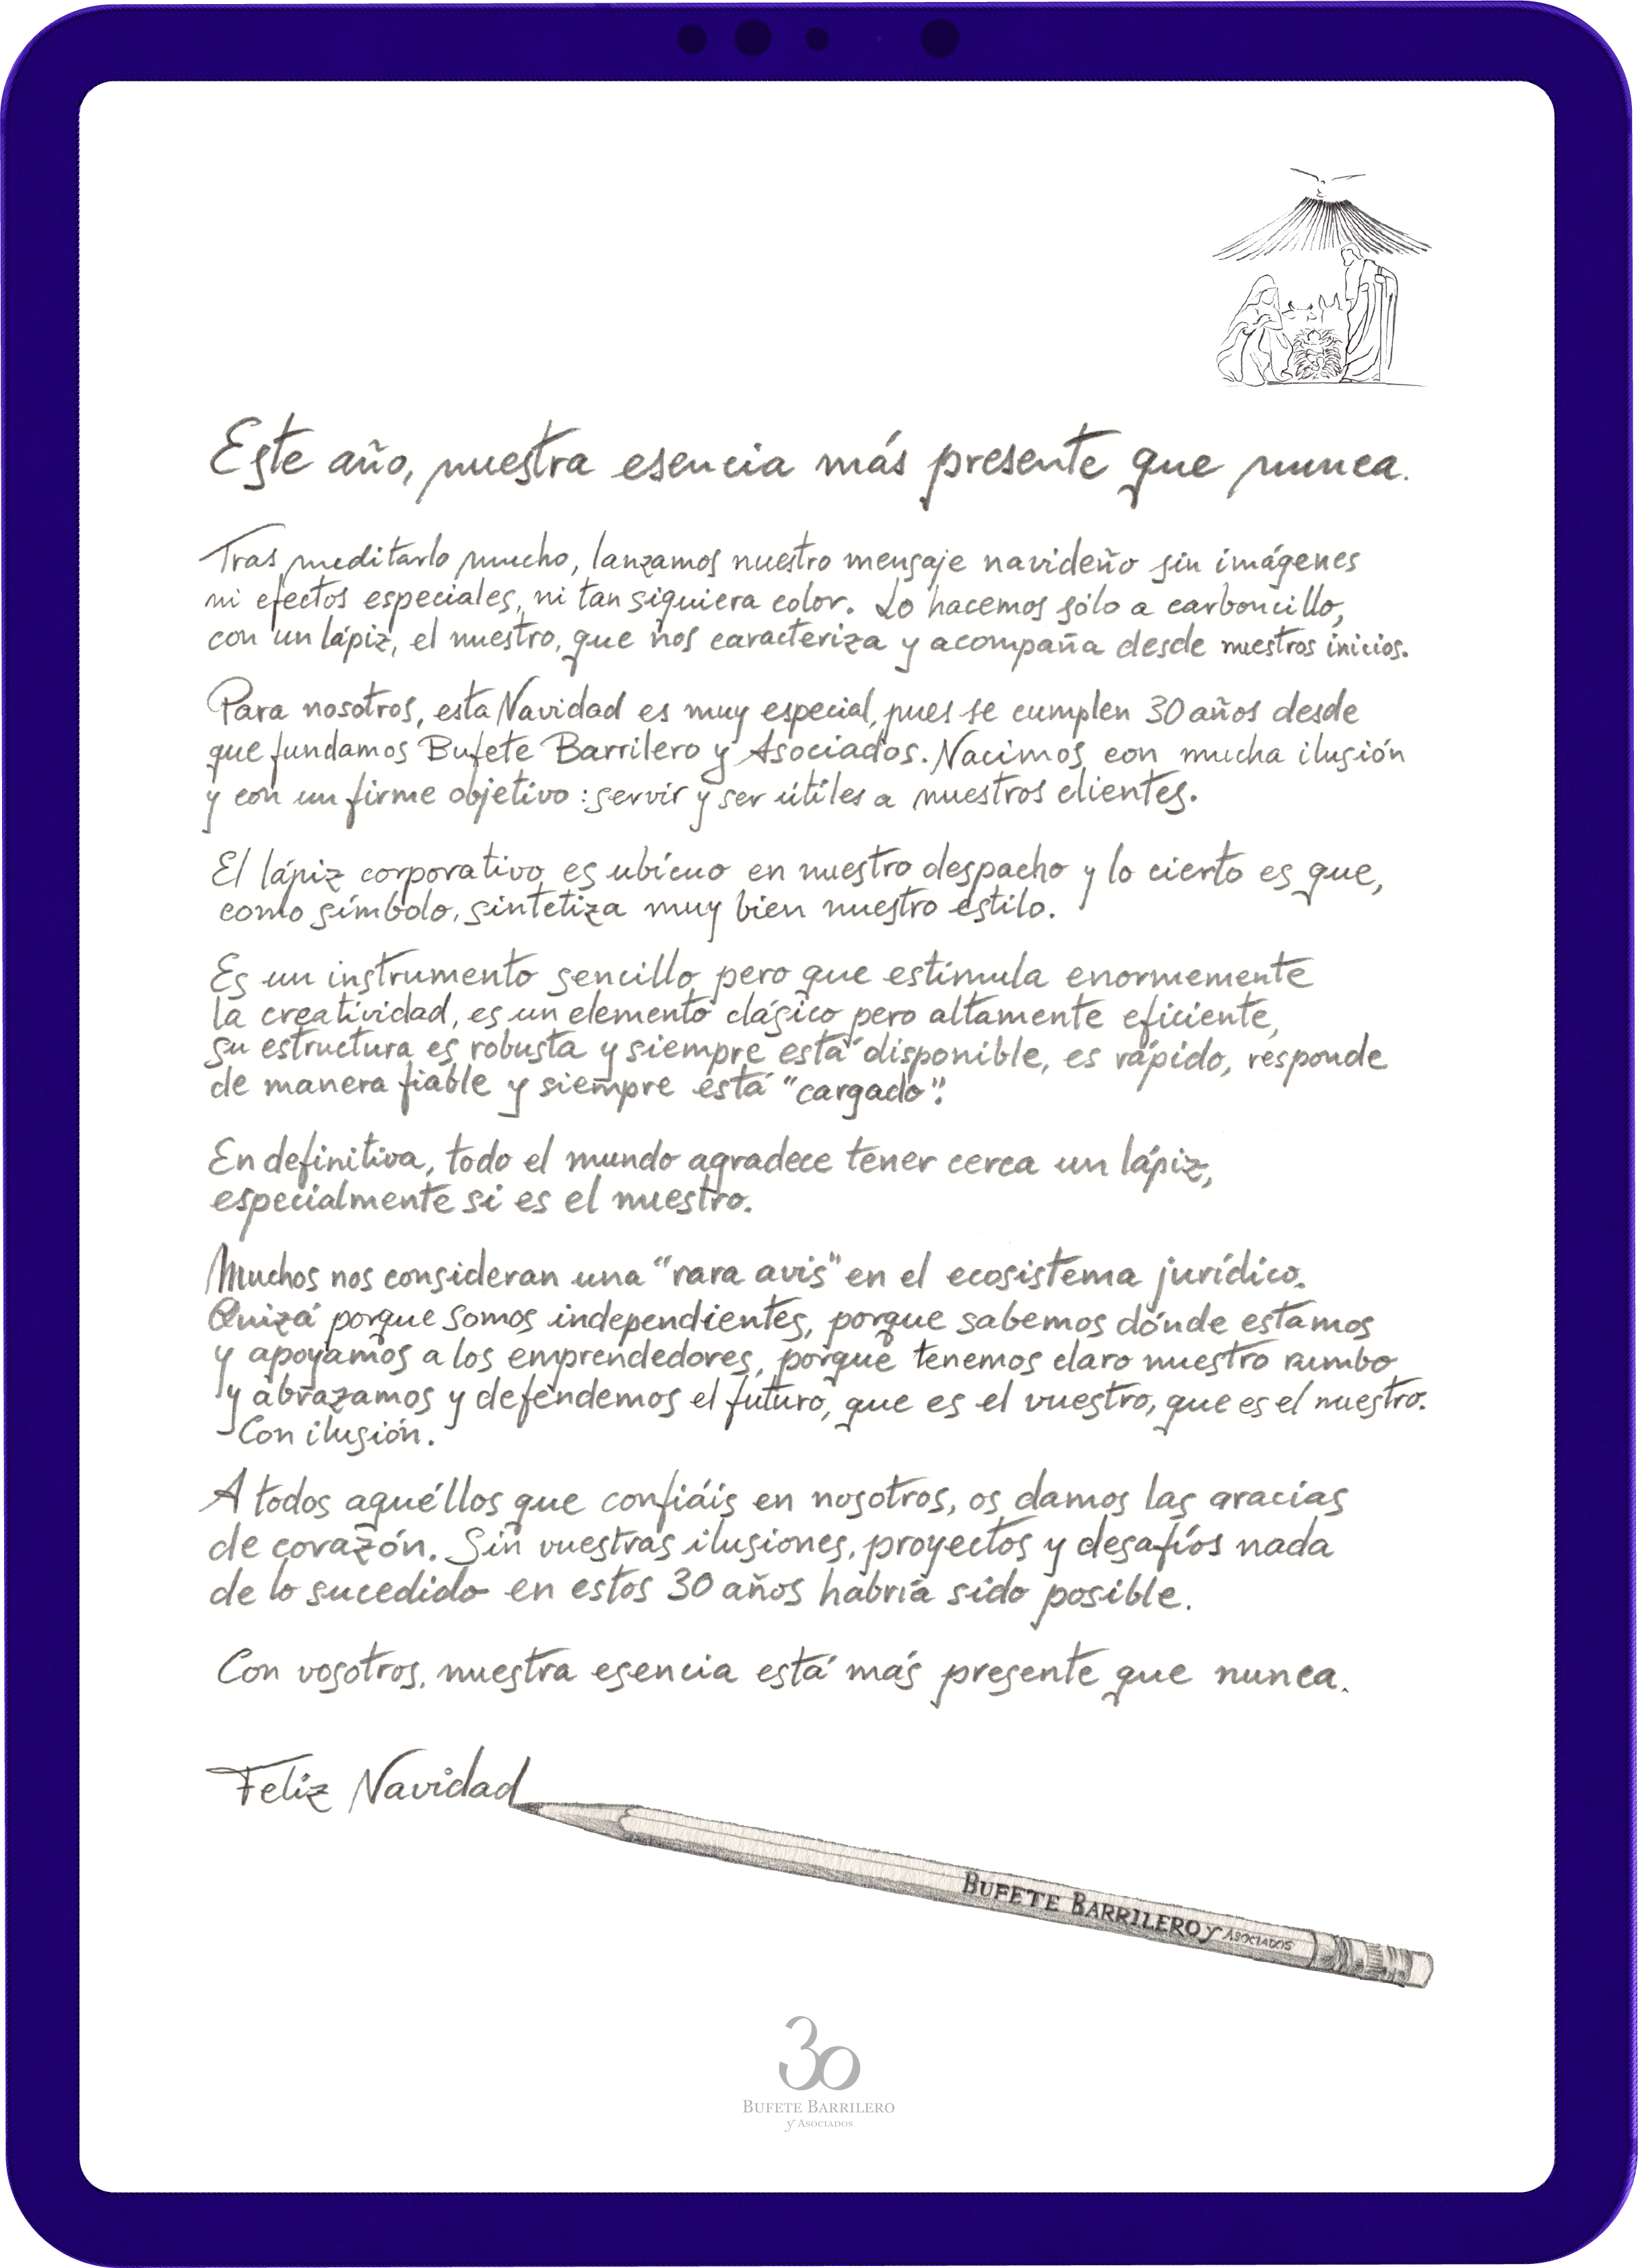 Este año, nuestra esencia más presente que nunca.
Tras meditarlo mucho, lanzamos nuestro mensaje navideño sin imágenes
ni efectos especiales, ni tan siquiera color. Lo hacemos sólo a carboncillo,
con un lápiz, el nuestro, que nos caracteriza y acompaña desde nuestros inicios.
Para nosotros, esta Navidad es muy especial, pues se cumplen 30 años desde
que fundamos Bufete Barrilero y Asociados. Nacimos con mucha ilusión
y con un firme objetivo: servir y ser útiles a nuestros clientes.
El lápiz corporativo es ubicuo en nuestro despacho y lo cierto es que,
como símbolo, sintetiza muy bien nuestro estilo.
Es un instrumento sencillo pero que estimula enormemente
la creatividad, es un elemento clásico pero altamente eficiente,
su estructura es robusta y siempre está disponible, es rápido, responde
de manera fiable y siempre está "cargado".
En definitiva, todo el mundo agradece tener cerca un lápiz,
especialmente si es el nuestro.
Muchos nos consideran una "rara avis" en el ecosistema jurídico.
Quizá porque somos independientes, porque sabemos dónde estamos
y apoyamos a los emprendedores, porque tenemos claro nuestro rumbo
y abrazamos y defendemos el futuro, que es el vuestro, que es el nuestro.
Con ilusión.
A todos aquéllos que confiáis en nosotros, os damos las gracias
de corazón. Sin vuestras ilusiones, proyectos y desafíos nada
de lo sucedido en estos 30 años habría sido posible.
Con vosotros, nuestra esencia está más presente que nunca.
Feliz Navidad
BUFETE BARRILERO Y ASOCIADOS
30
BUFETE BARRILERO
Y ASOCIADOS